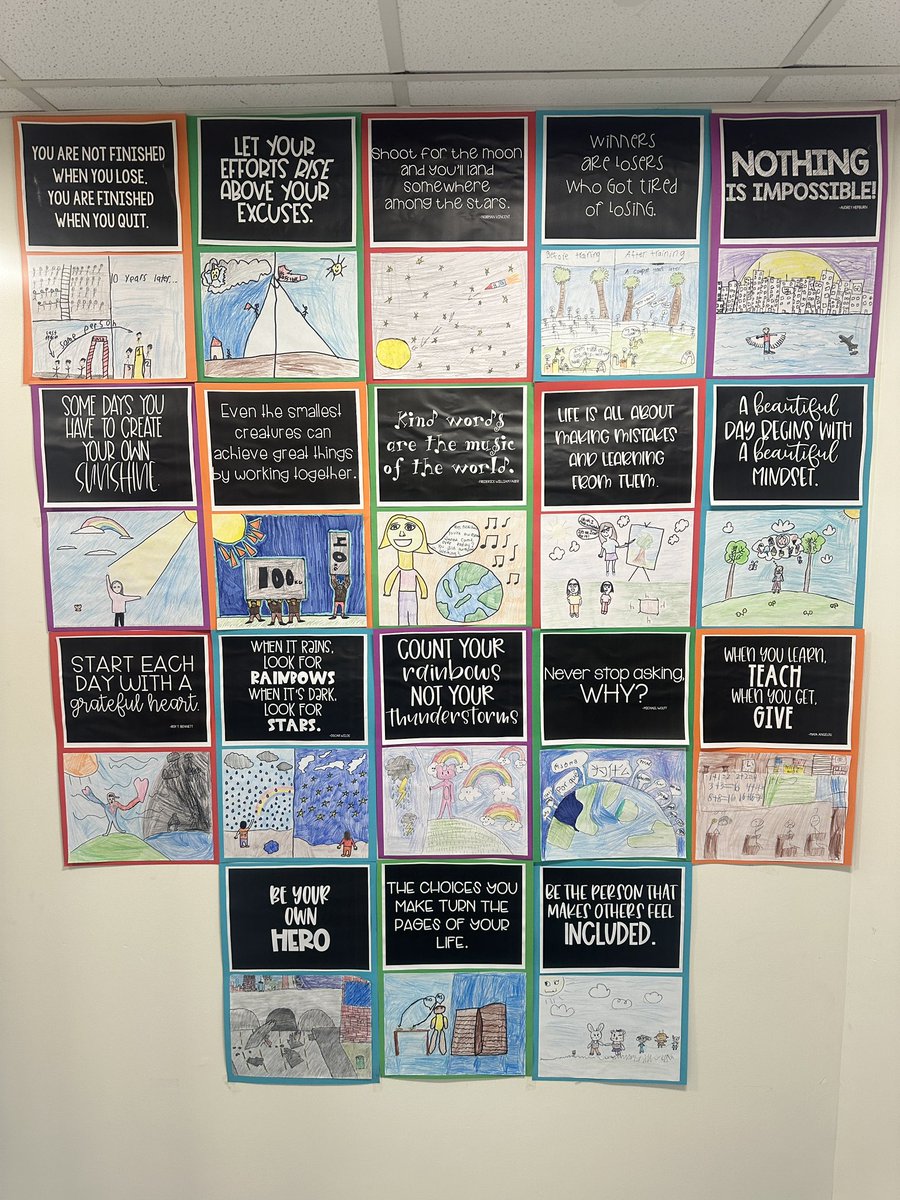 YOU ARE NOT FINISHED
WHEN YOU LOSE.
YOU ARE FINISHED
WHEN YOU QUIT.
LET YOUR
EFFORTS RISE
ABOVE YOUR
EXCUSES.
Shoot for the moon
and you'll land
somewhere
among the stars.
-NORMAN VINCENT
WINNERS
ARE LOSERS
WHO GOT TIRED
OF LOSING.
NOTHING
IS IMPOSSIBLE!
-AUDREY HEPBURN
10 years later...
same person
Before training
After training
A couple years later
SOME DAYS YOU
HAVE TO CREATE
YOUR OWN
SUNSHINE.
Even the smallest
creatures can
achieve great things
by working together.
Kind words
are the music
of the world.
LIFE IS ALL ABOUT
MAKING MISTAKES
AND LEARNING
FROM THEM.
A beautiful
DAY BEGINS WITH
A beautiful
MINDSET.
100
START EACH
DAY WITH A
grateful heart.
-ROY T. BENNETT
WHEN IT RAINS,
LOOK FOR
RAINBOWS
WHEN IT'S DARK,
LOOK FOR
STARS.
-OSCAR WILDE
COUNT YOUR
rainbows
NOT YOUR
thunderstorms
Never stop asking,
WHY?
-MICHAEL WOLFF
WHEN YOU LEARN,
TEACH
WHEN YOU GET,
GIVE
-MAYA ANGELOU
BE YOUR
OWN
HERO
THE CHOICES YOU
MAKE TURN THE
PAGES OF YOUR
LIFE.
BE THE PERSON THAT
MAKES OTHERS FEEL
INCLUDED.